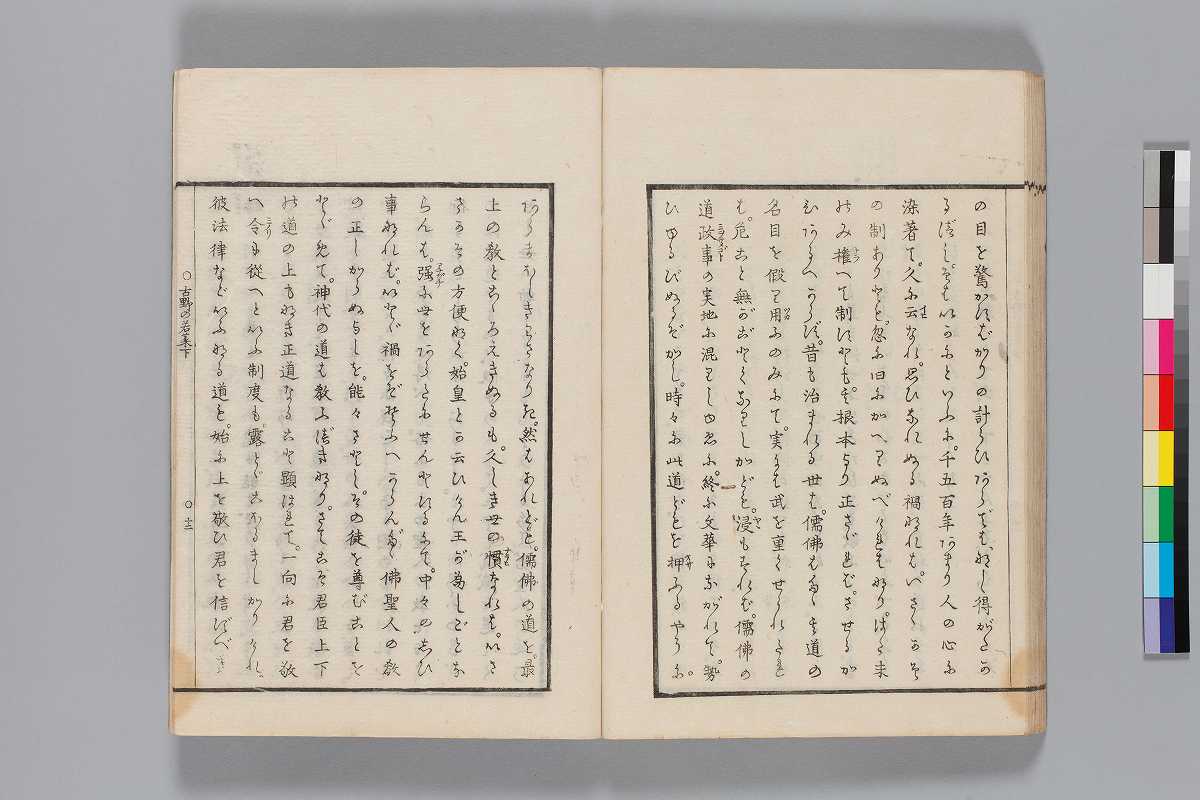 の目を驚かすばかりの計らひあらずは、なし得がたか
るべし。そはいかにといふに。千五百年あまり人の心に
染著て。久に云なれ。思ひなれぬる禍なれば。いさゝかそ
の制ありとも。忽に旧にかへりぬべければなり。はた末
のみ権へて制すとも。其根本より正さゞれば。させるか
ひあらへからず。昔も治まれる世は。儒佛もたゞ其道の
名目を假り用ふのみにて。実には武を重くせられたれ
ば。危こと無がごとくなりしかども。浸もすれば。儒佛の
道政事の実地に混りしゆゑに。終に文華にながれて。勢
ひゆるびぬるぞかし。時々に此道どもを押ふるやうに。
あらまほしきわざなりき。然はあれども。儒佛の道を。最
上の教とこゝろえきぬるも。久しき世の慣なれば。いさ
さかその方便なく。始皇とか云ひけん王が為しごとな
らんは。强に世をあらたに せんとするにて。中々のしひ
事なれば。いとゞ禍をぞそふへからんかし。佛聖人の教
の正しからぬよしを。能々さとし。その徒を尊むことを
とゞめて。神代の道を教ふべきなり。さてこそ君臣上下
の道の上もなき正道なること顕はれて。一向に君を敬
へ令に從へといふ制度も。露とゞこほるましかりけれ。
彼法律などいふなる道も。始に上を敬ひ君を信ずべき
○古野の若菜下 ○十二